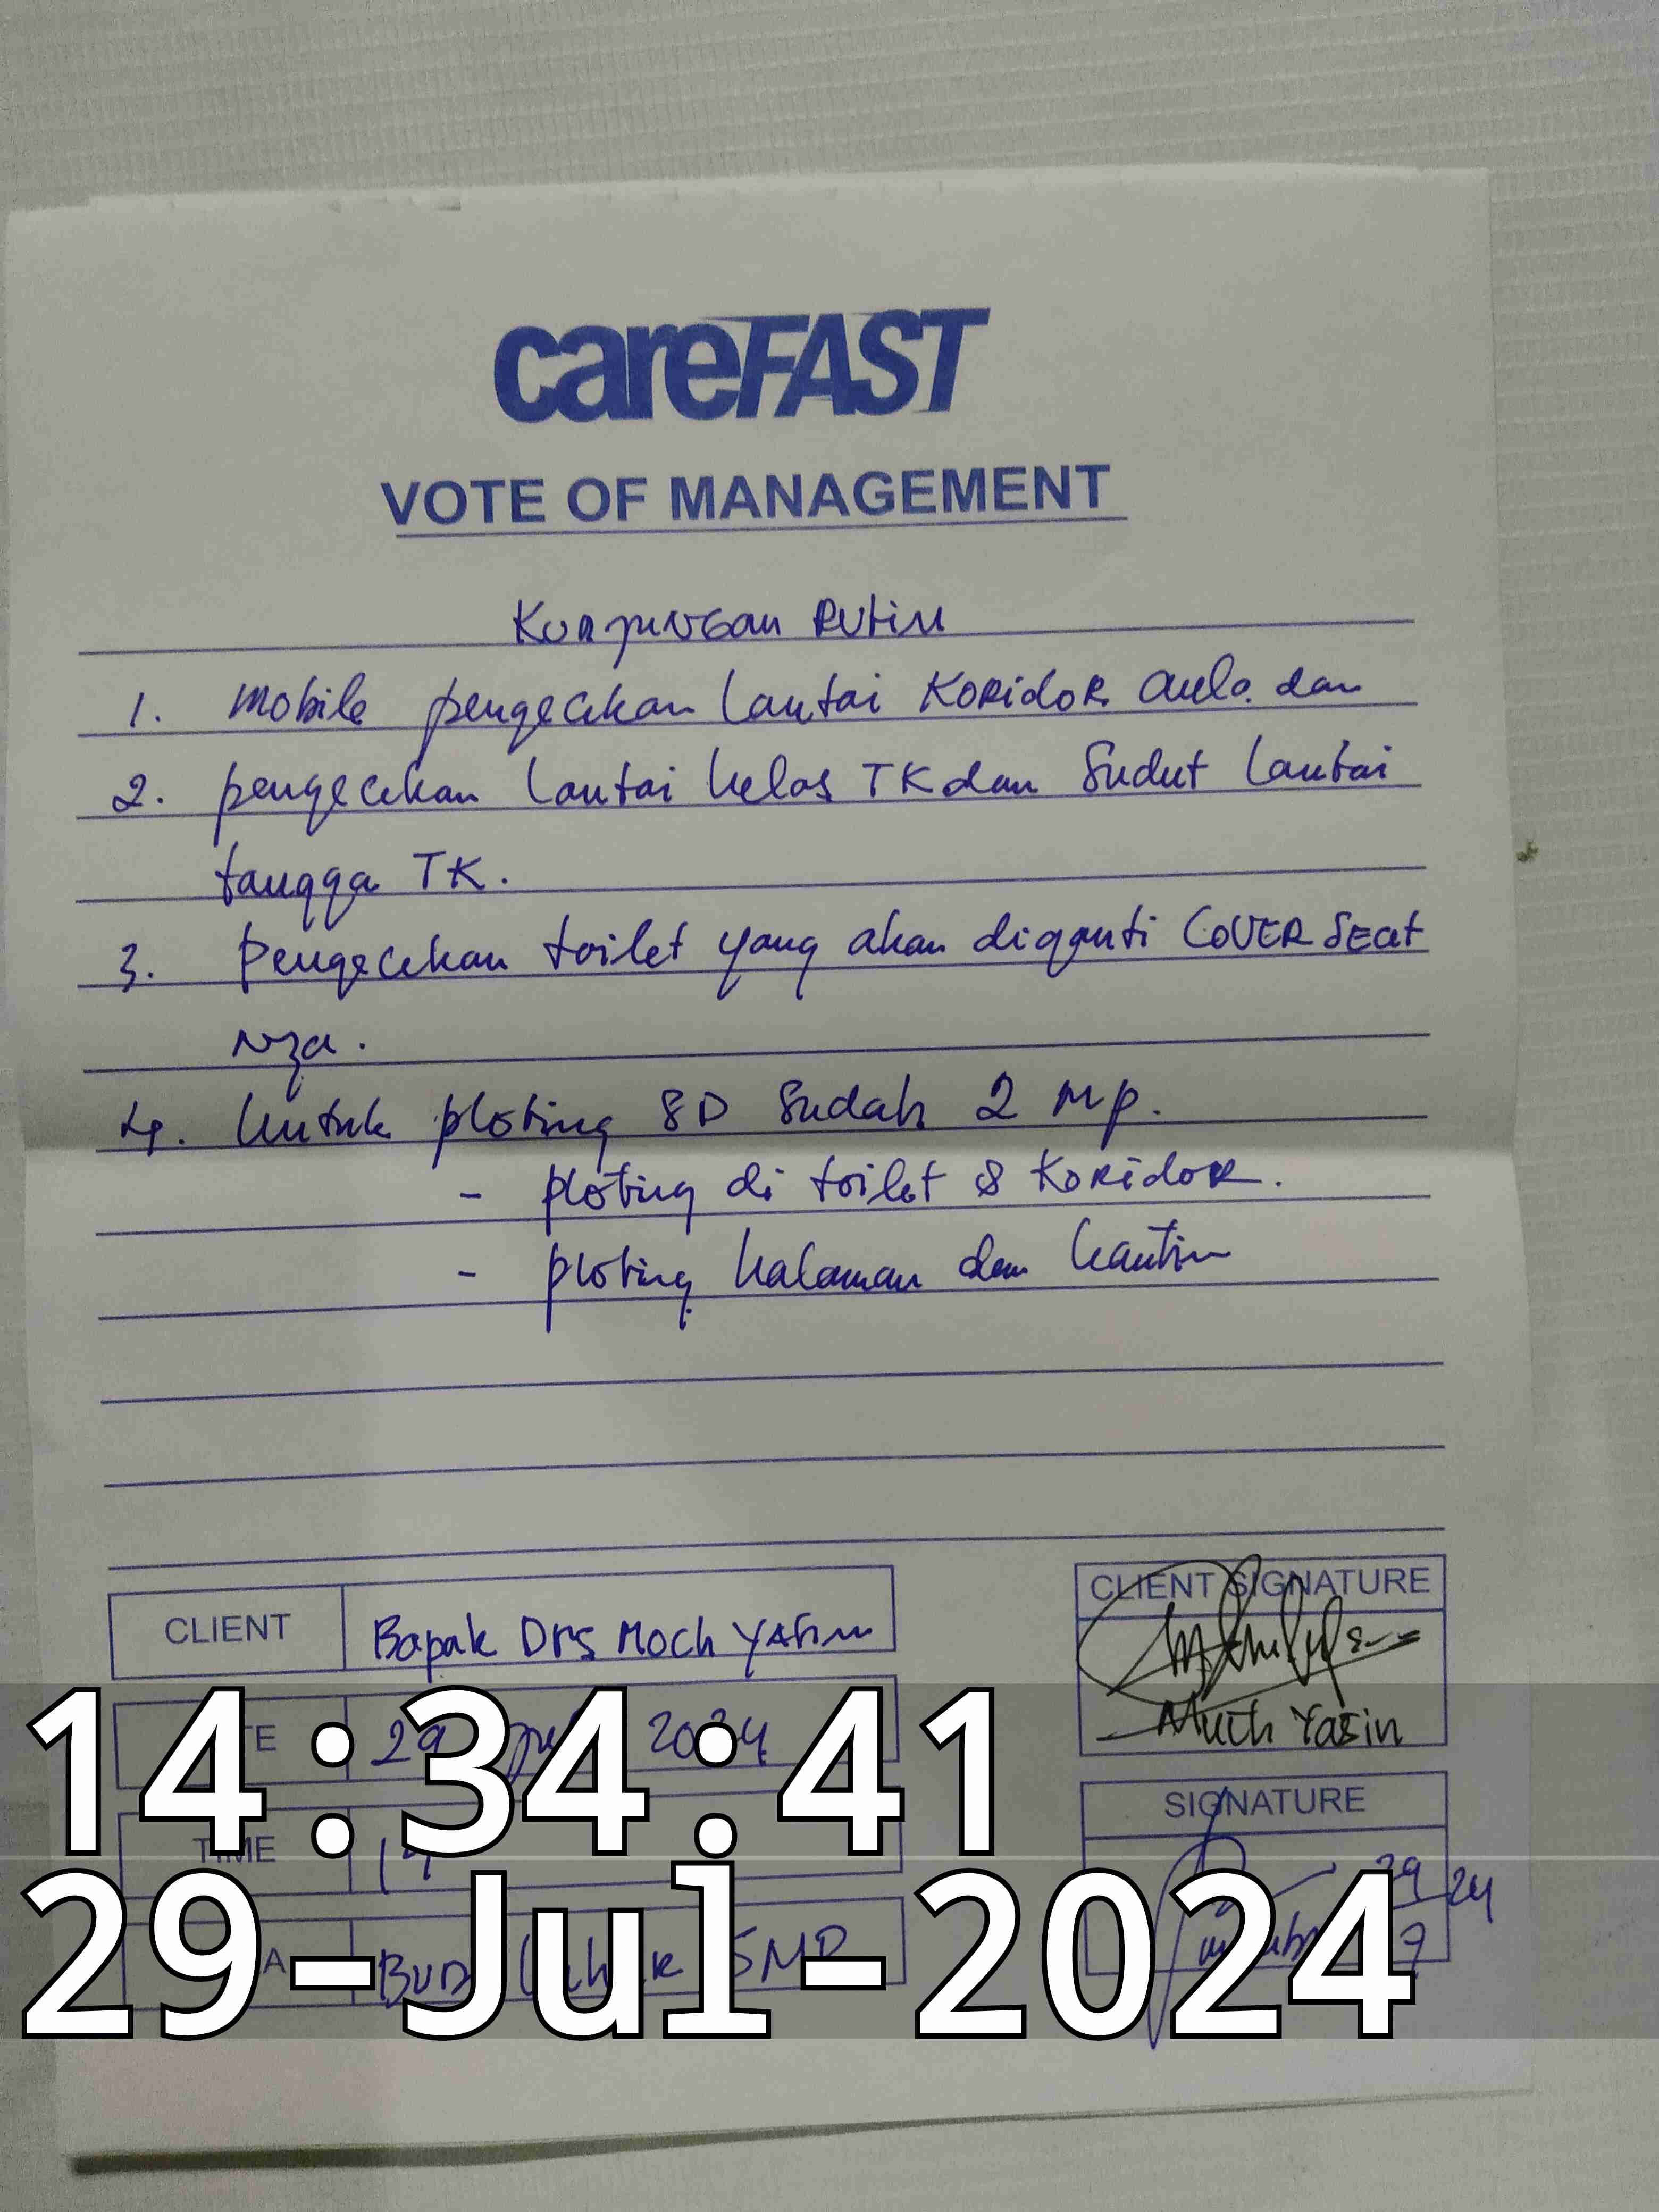 careFAST
VOTE OF MANAGEMENT
Kunjungan Rutin
1. Mobile pengecekan lantai Koridor aula dan
2. pengecekan lantai kelas TK dan Sudut lantai
tangga TK.
3. Pengecekan toilet yang akan diganti COVER SEat
Nya.
4. Untuk ploting SD Sudah 2 Mp.
- ploting di toilet & Koridor.
- ploting halaman dan kantin
CLIENT Bapak Drs Moch Yasin
CLIENT SIGNATURE
Moch Yasin
29 2024
TIME
SIGNATURE
29 24
7
SMP
14:34:41
29-Jul-2024